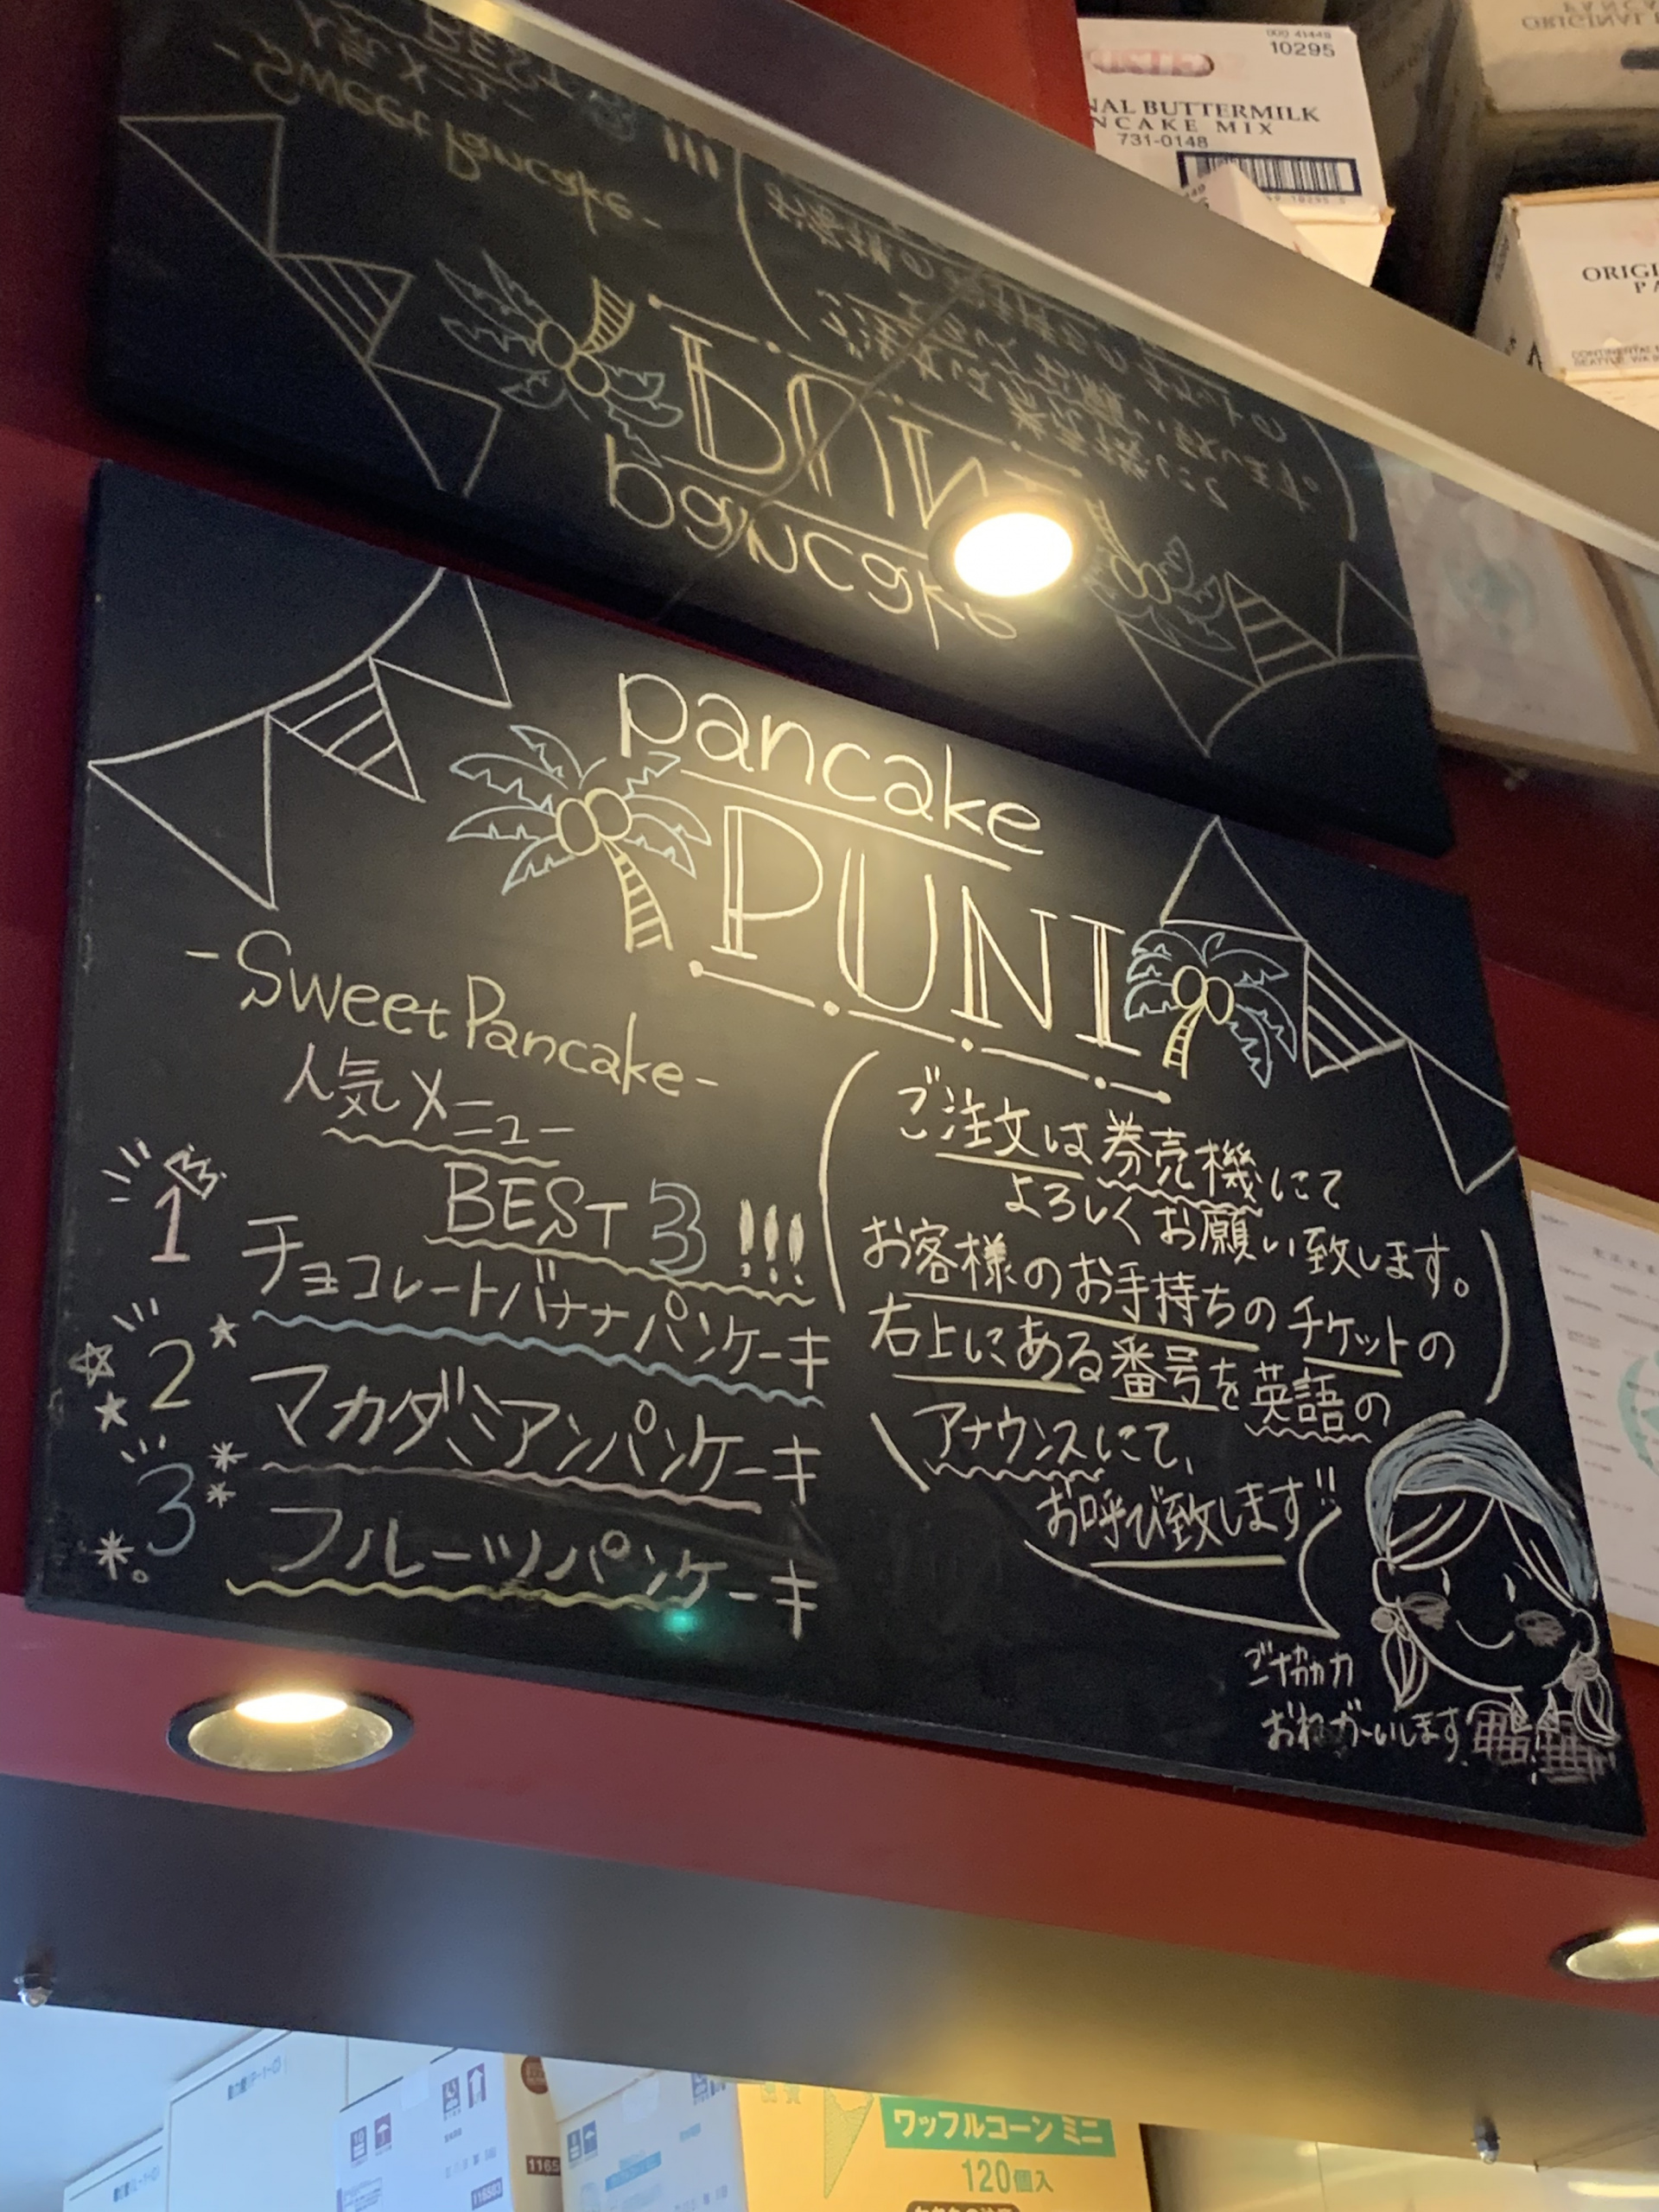 10295
NAL BUTTERMILK
NCAKE MIX
731-0148
ORIGI
PA
pancake
PUNI
-Sweet Pancake-
人気メニュー
BEST 3 !!!
1 チョコレートバナナパンケーキ
2 マカダミアンパンケーキ
3 フルーツパンケーキ
ご注文は券売機にて
よろしくお願い致します。
お客様のお手持ちのチケットの
右上にある番号を英語の
アナウンスにて、
お呼び致します!!
ご協力
おねがーいします
ワッフルコーン ミニ
120個入
1165
116503